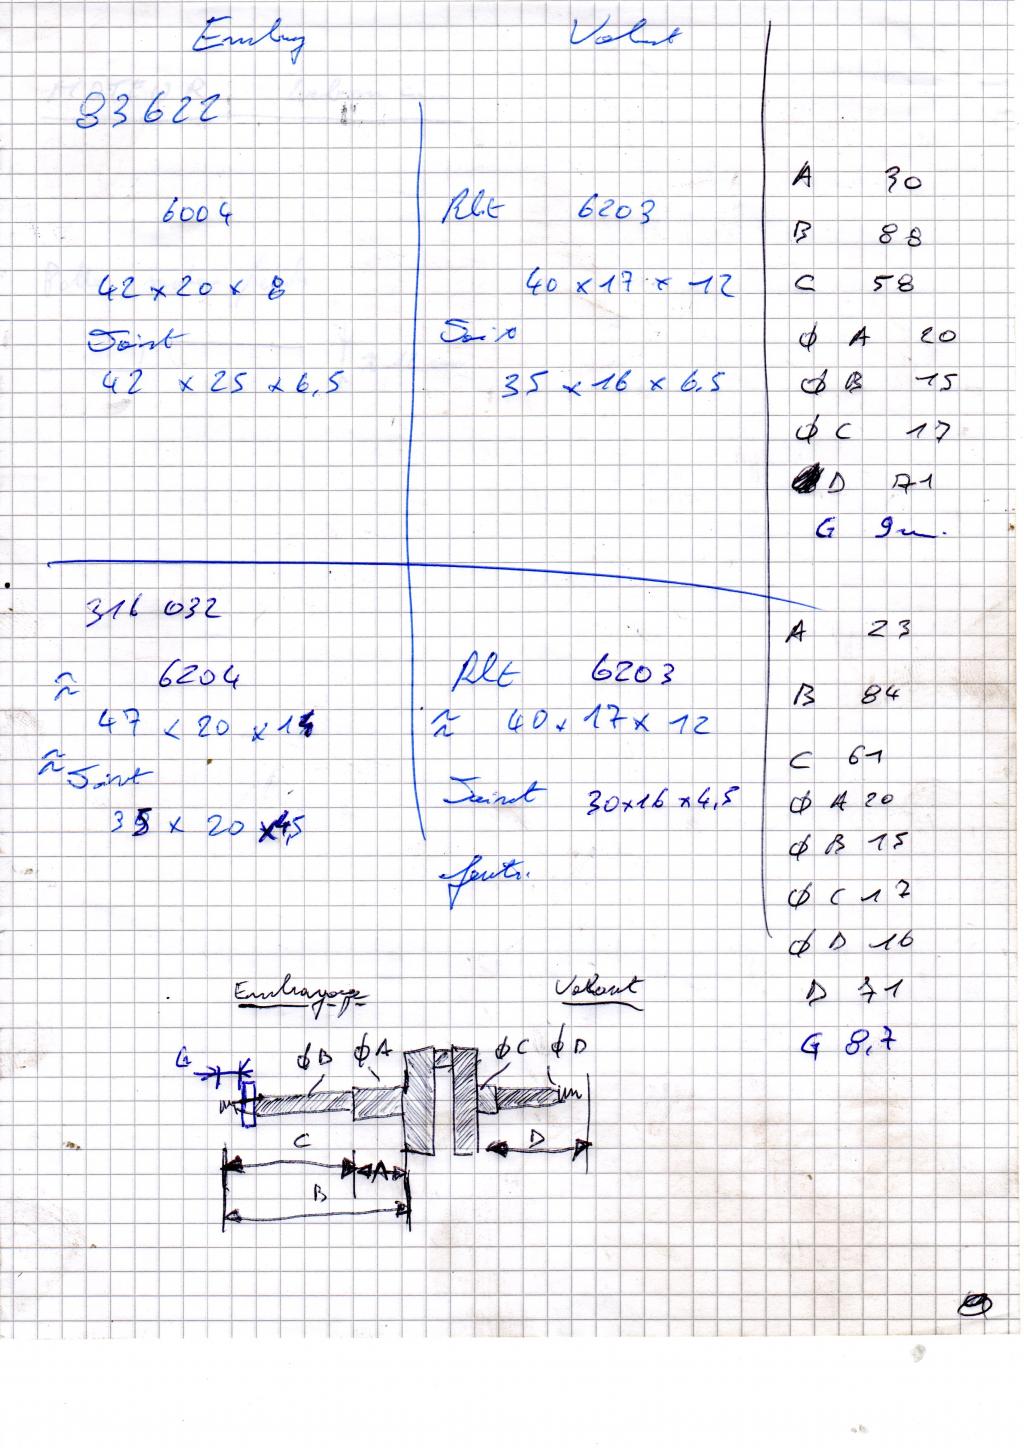 Embray Volant
83622
6004
42 x 20 x 8
Joint
42 x 25 x 6,5
Rlt 6203
40 x 17 x 12
Joint
35 x 16 x 6.5
A 30
B 88
C 58
ϕ A 20
ϕ B 15
ϕ C 17
D 71
G 9
316 032
≈ 6204
47 x 20 x 14
≈ Joint
35 x 20 x 4,5
Rlt 6203
≈ 40 x 17 x 12
Joint 30x16 x 4,5
A 23
B 84
C 61
ϕ A 20
ϕ B 15
ϕ C 17
ϕ D 16
D 71
G 8,7
Embrayage Volant
G ϕB ϕA ϕC ϕD
C D
A
B